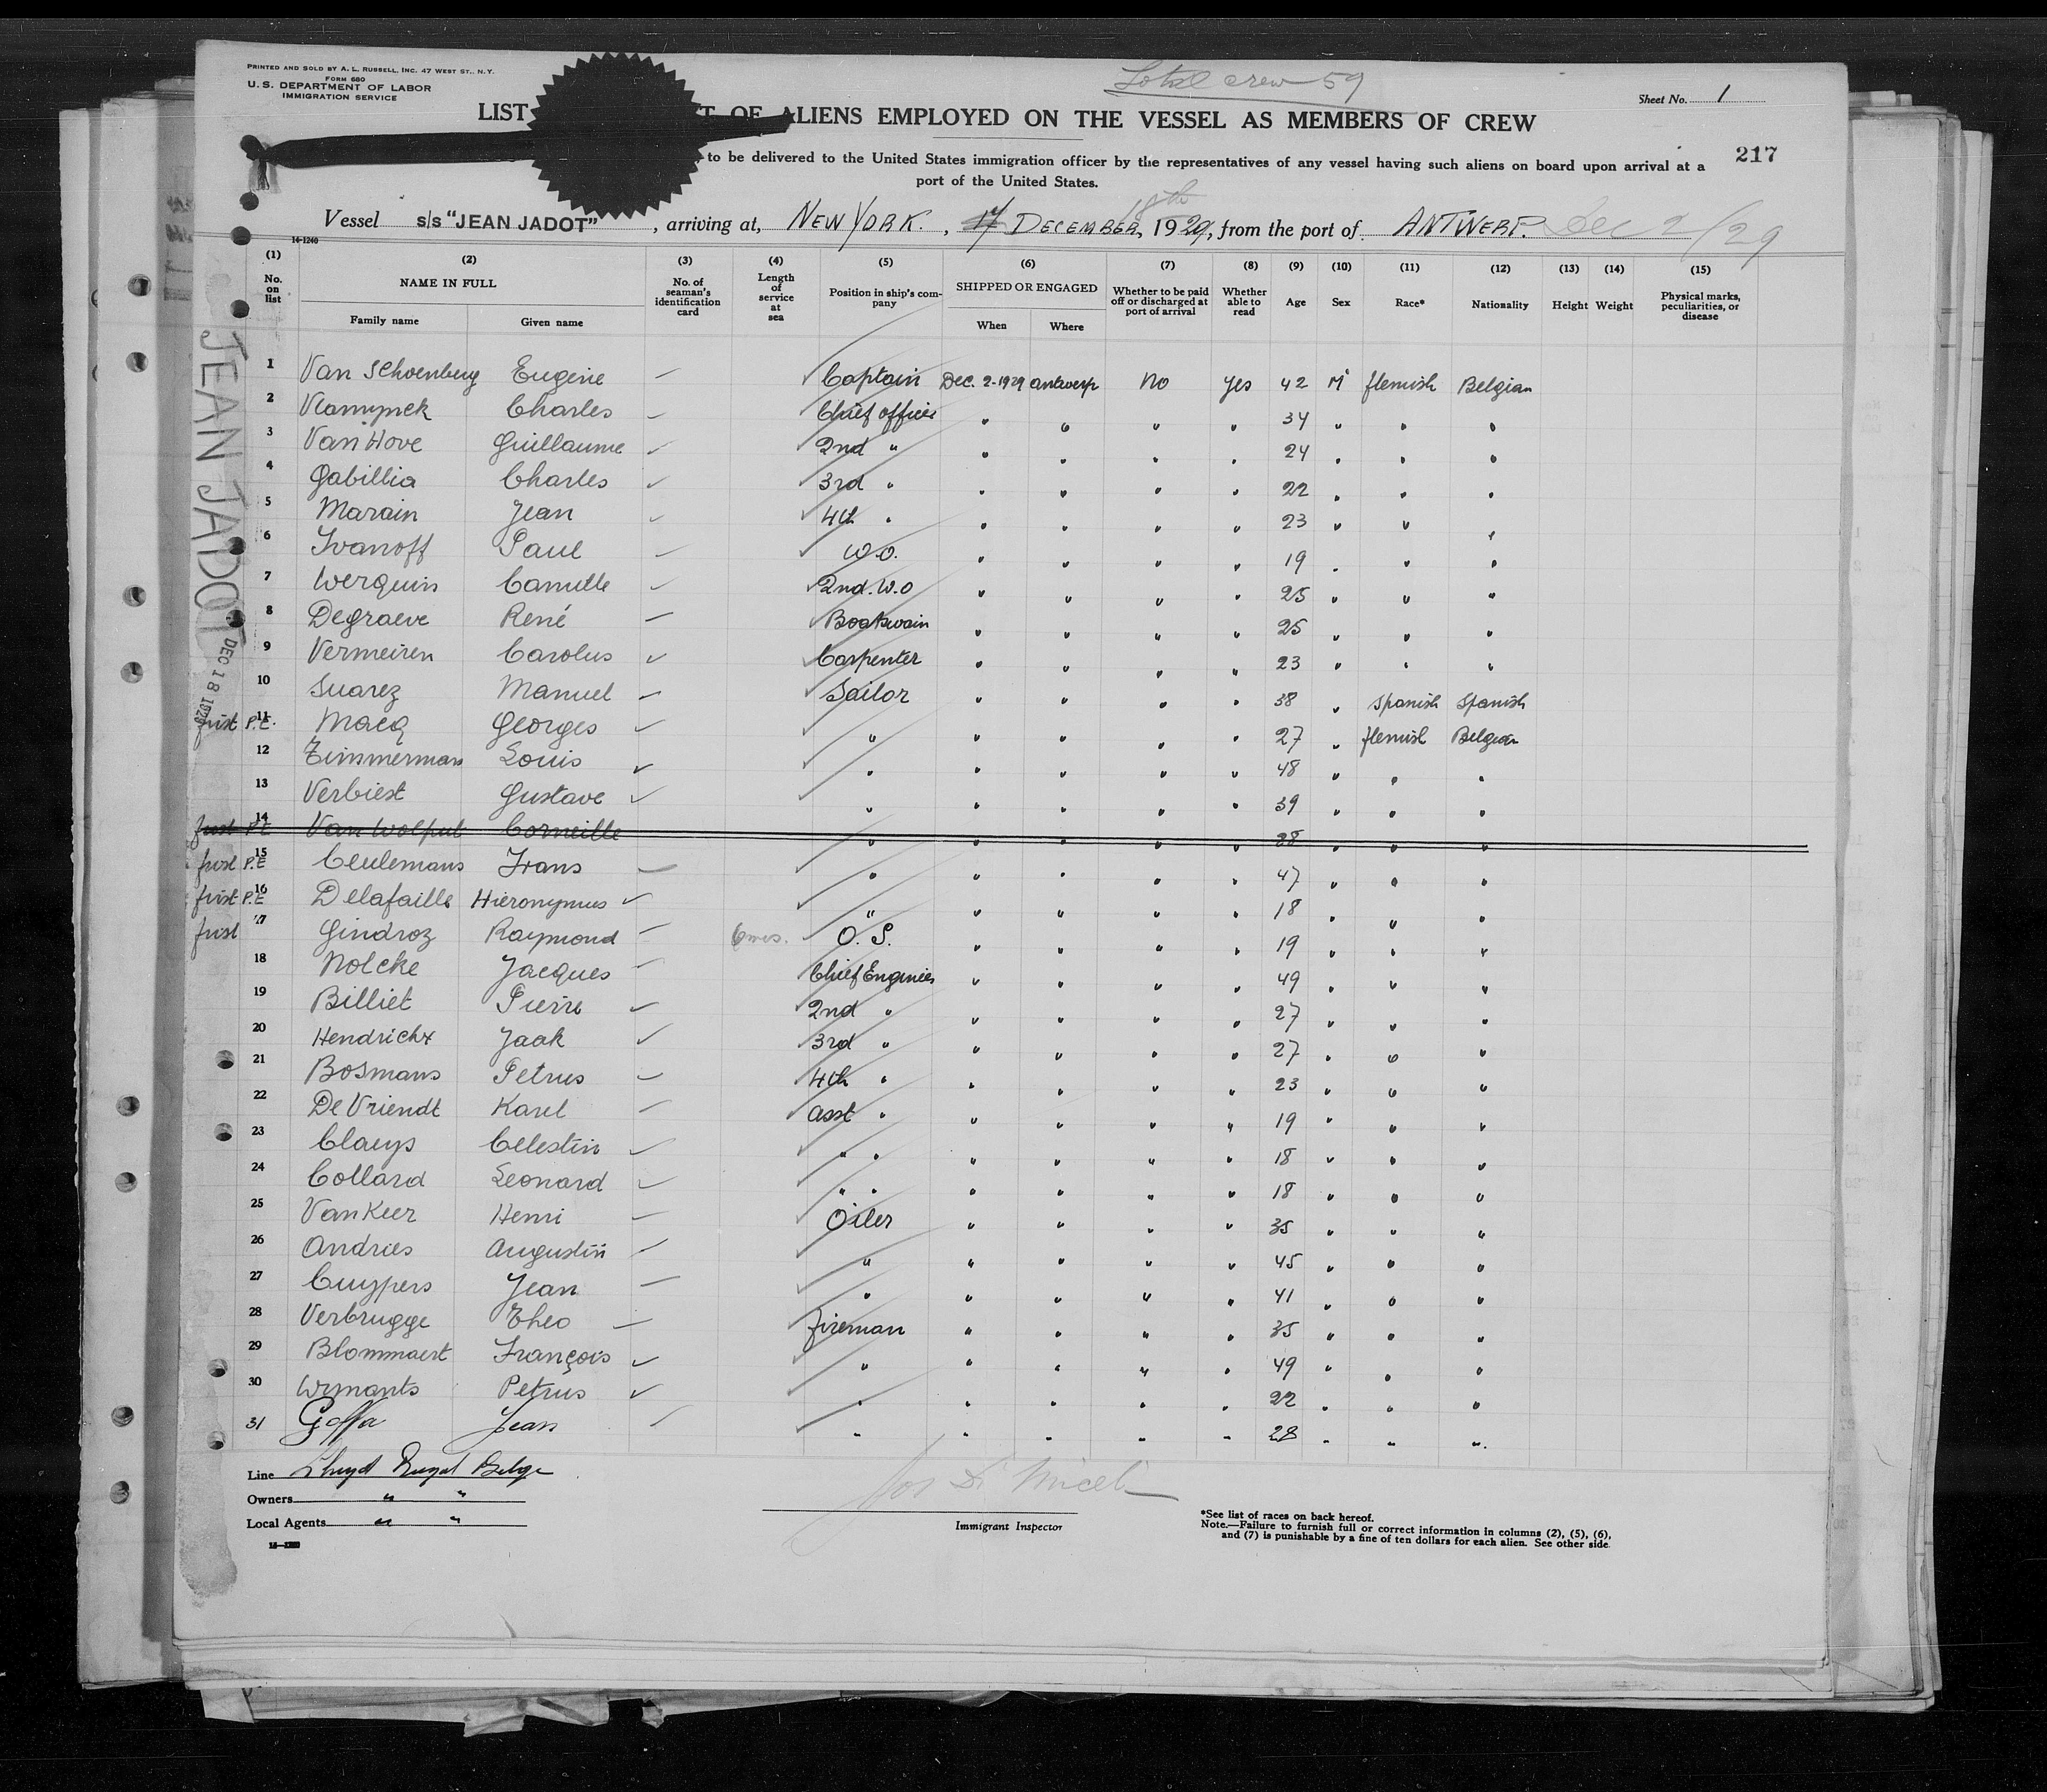 PRINTED AND SOLD BY A. L. RUSSELL, INC. 47 WEST ST., N.Y.
FORM 680
U. S. DEPARTMENT OF LABOR
IMMIGRATION SERVICE
Total crew 59
Sheet No. 1
LIST OF ALIENS EMPLOYED ON THE VESSEL AS MEMBERS OF CREW
217
to be delivered to the United States immigration officer by the representatives of any vessel having such aliens on board upon arrival at a
port of the United States.
18th
Vessel s/s "JEAN JADOT", arriving at, NEW YORK., 17 DECEMBER, 1929, from the port of ANTWERP. Dec 2/29
14-1240
(1) No. on list (2) NAME IN FULL Family name Given name (3) No. of seaman's identification card (4) Length of service at sea (5) Position in ship's company (6) SHIPPED OR ENGAGED When Where (7) Whether to be paid off or discharged at port of arrival (8) Whether able to read (9) Age (10) Sex (11) Race* (12) Nationality (13) Height (14) Weight (15) Physical marks, peculiarities, or disease
JEAN JADOT
DEC 18 1929
1 Van Schoenberg Eugène Captain Dec. 2-1929 Antwerp No Yes 42 M flemish Belgian
2 Vlamynck Charles Chief officer " " " " 34 " " "
3 Van Hove Guillaume 2nd " " " " " 24 " " "
4 Gabillia Charles 3rd " " " " " 22 " " "
5 Marain Jean 4th " " " " " 23 " " "
6 Ivanoff Paul W.O. " " " " 19 " " "
7 Werquin Camille 2nd. W.O " " " " 25 " " "
8 Degraeve René Boatswain " " " " 25 " " "
9 Vermeiren Carolus Carpenter " " " " 23 " " "
10 Suarez Manuel Sailor " " " " 38 " Spanish Spanish
first P.E. 11 Macq Georges " " " " " 27 " flemish Belgian
12 Zimmermans Louis " " " " " 48 " " "
13 Verbiest Gustave " " " " " 39 " " "
first P.E 14 Van Wolput Corneille " " " " " 28 " " "
first P.E 15 Ceulemans Frans " " " " " 47 " " "
first P.E 16 Delafaille Hieronymus " " " " " 18 " " "
first 17 Gindroz Raymond 6 mos. O. S. " " " " 19 " " "
18 Nolcke Jacques Chief Engineer " " " " 49 " " "
19 Billiet Pierre 2nd " " " " " 27 " " "
20 Hendrickx Jaak 3rd " " " " " 27 " " "
21 Bosmans Petrus 4th " " " " " 23 " " "
22 De Vriendt Karel asst " " " " " 19 " " "
23 Claeys Celestin " " " " " " 18 " " "
24 Collard Leonard " " " " " " 18 " " "
25 Van Keer Henri Oiler " " " " 35 " " "
26 Andries Augustin " " " " " 45 " " "
27 Cuypers Jean " " " " " 41 " " "
28 Verbrugge Theo Fireman " " " " 35 " " "
29 Blommaert François " " " " " 49 " " "
30 Wymants Petrus " " " " " 22 " " "
31 Goffa Jean " " " " " 28 " " "
Line Lloyd Royal Belge
Owners " "
Local Agents " "
Immigrant Inspector
*See list of races on back hereof.
Note.—Failure to furnish full or correct information in columns (2), (5), (6),
and (7) is punishable by a fine of ten dollars for each alien. See other side.